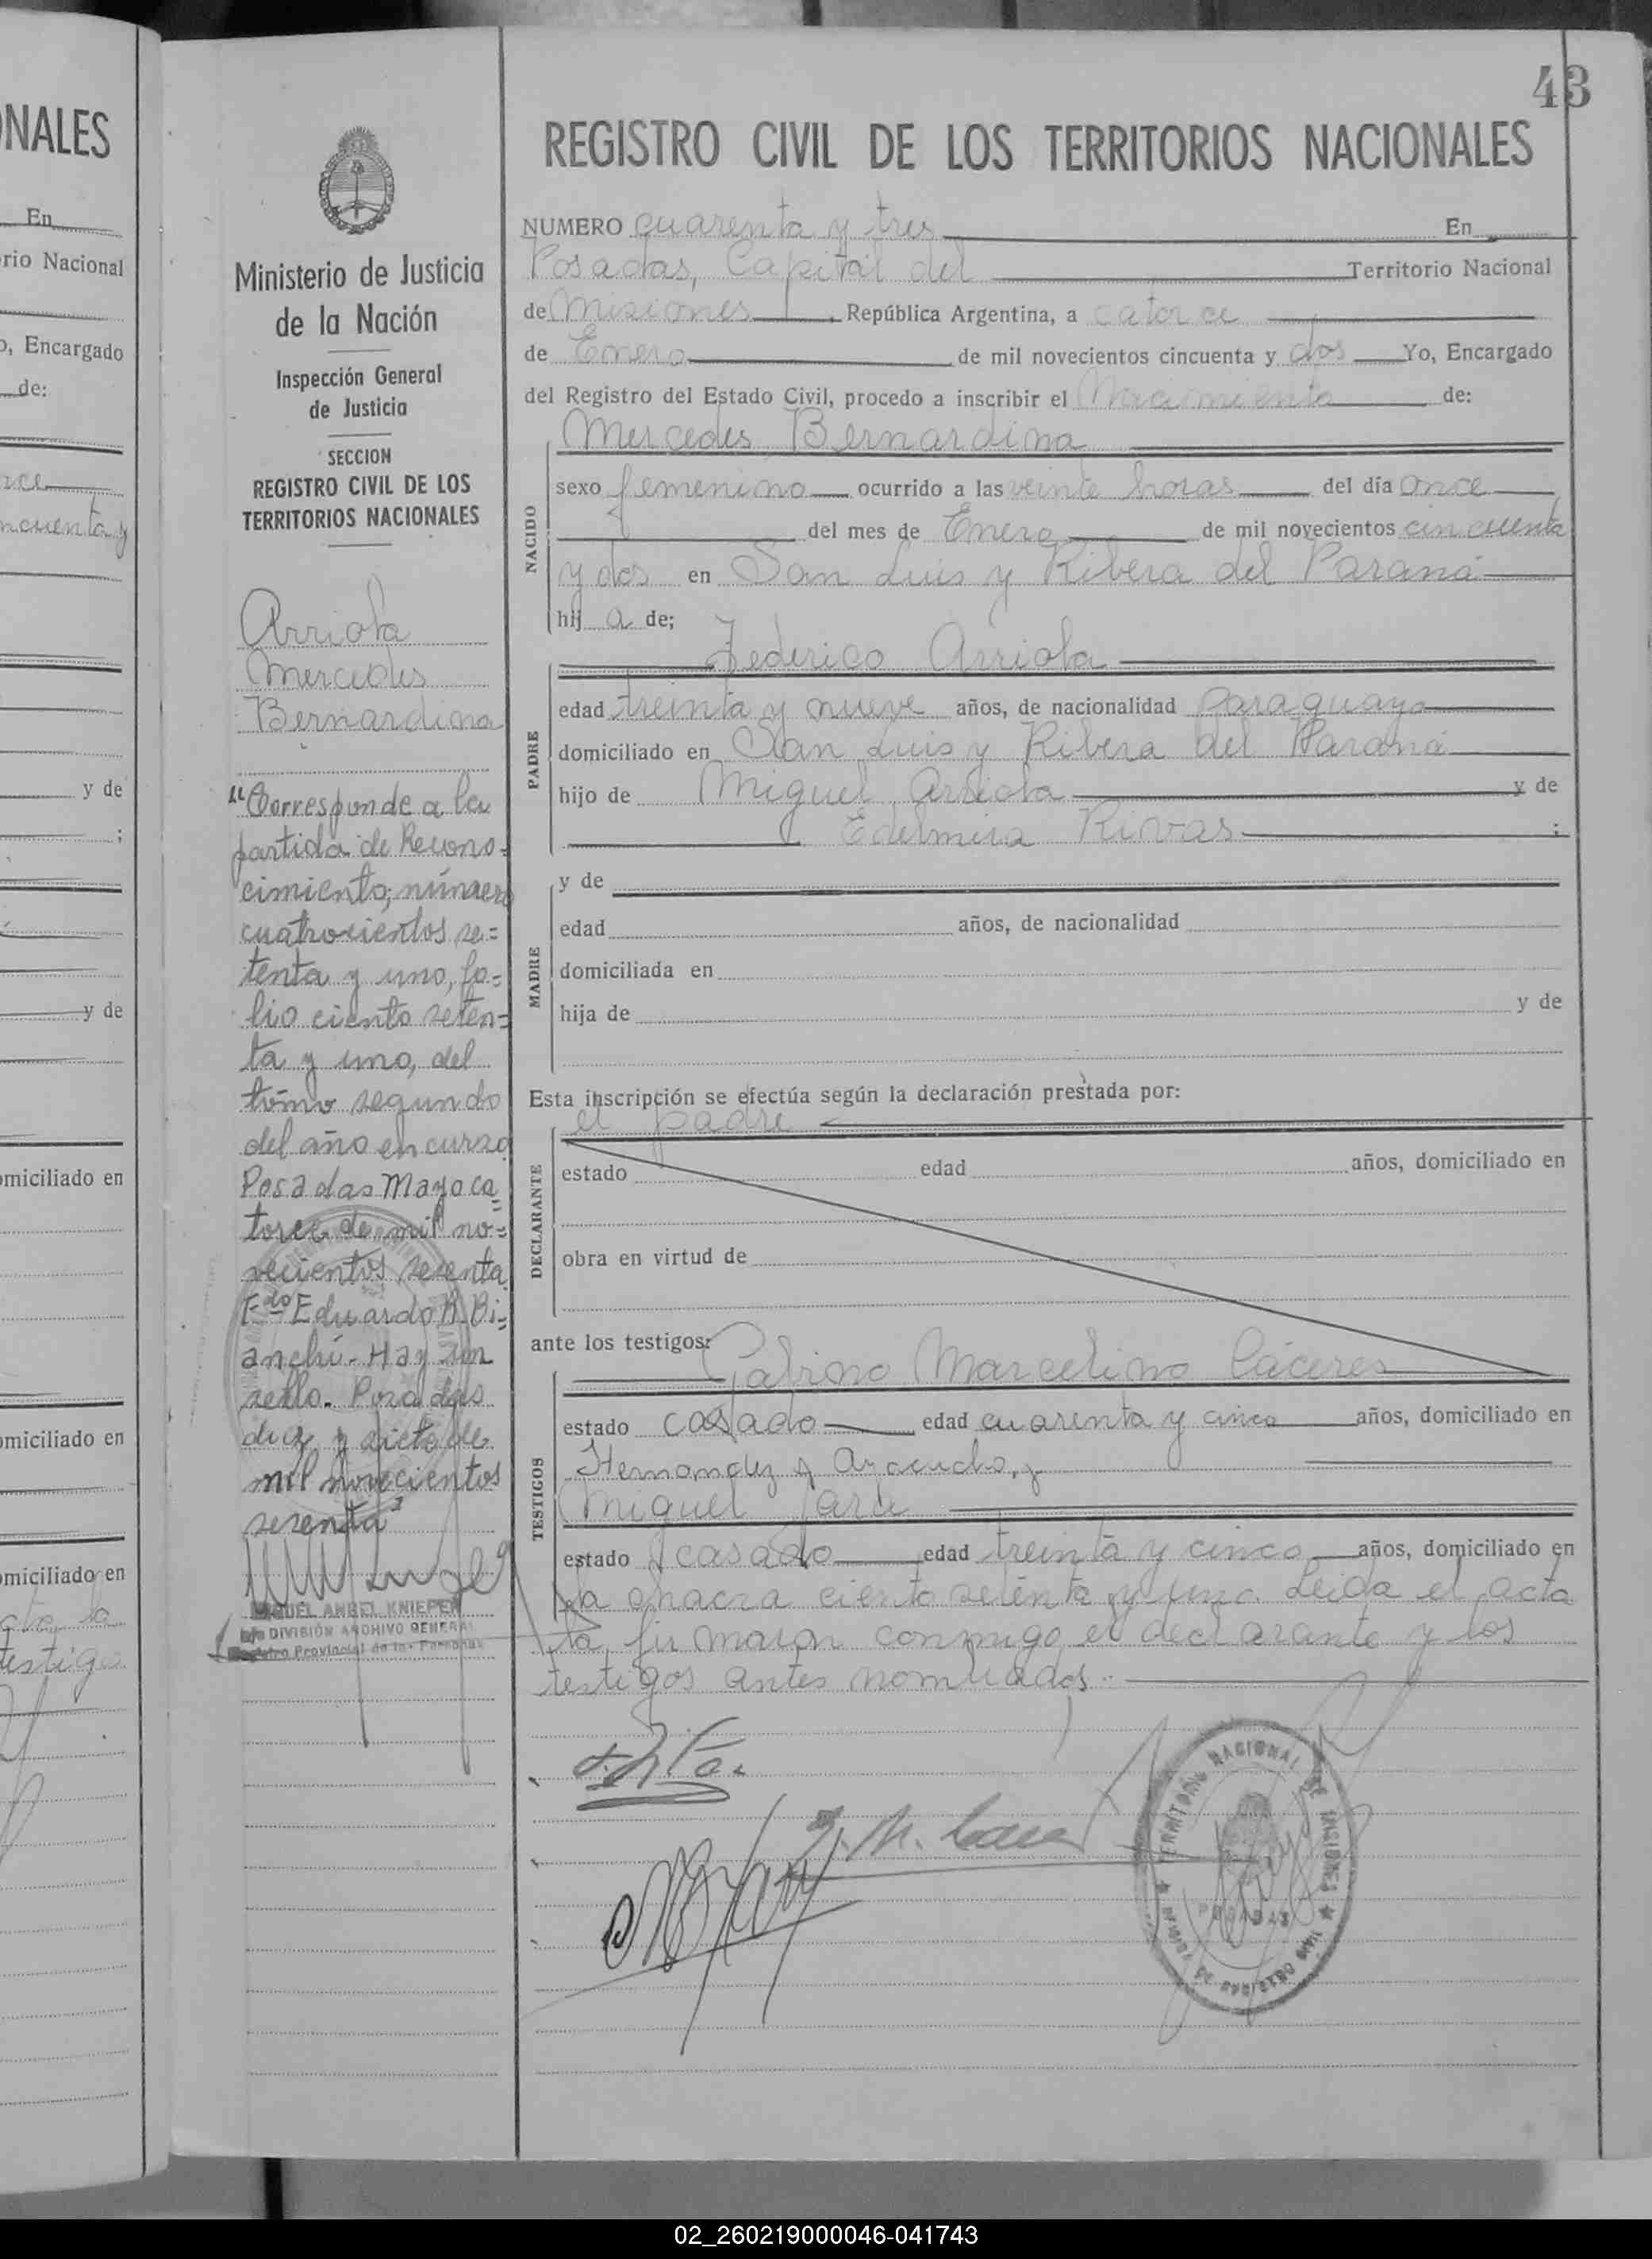 NALES
En
rio Nacional
o, Encargado
de:
y de
;
y de
miciliado en
miciliado en
miciliado en
43
Ministerio de Justicia
de la Nación
Inspección General
de Justicia
SECCION
REGISTRO CIVIL DE LOS
TERRITORIOS NACIONALES
Arriola
Mercedes
Bernardina
"Corresponde a la
partida de Recono-
cimiento, número
cuatrocientos se=
tenta y uno, fo=
lio ciento seten=
ta y uno, del
tomo segundo
del año en curso
Posadas Mayo ca
torce de mil no=
vecientos sesenta
Fdo Eduardo R. Bi=
anchi - Hay un
sello. Posadas
diez y siete de
mil novecientos
sesenta"
MIGUEL ANGEL KNIEPER
DIVISIÓN ARCHIVO GENERAL
Registro Provincial de las Personas
REGISTRO CIVIL DE LOS TERRITORIOS NACIONALES
NUMERO cuarenta y tres En
Posadas, Capital del Territorio Nacional
de Misiones, República Argentina, a catorce
de Enero de mil novecientos cincuenta y dos Yo, Encargado
del Registro del Estado Civil, procedo a inscribir el Nacimiento de:
NACIDO
Mercedes Bernardina
sexo femenino ocurrido a las veinte horas del día once
del mes de Enero de mil novecientos cincuenta
y dos en San Luis y Ribera del Paraná
hij a de;
PADRE
Federico Arriola
edad treinta y nueve años, de nacionalidad Paraguaya
domiciliado en San Luis y Ribera del Paraná
hijo de Miguel Arriola y de
Edelmira Rivas ;
MADRE
y de
edad años, de nacionalidad
domiciliada en
hija de y de
Esta inscripción se efectúa según la declaración prestada por:
el padre
DECLARANTE
estado edad años, domiciliado en
obra en virtud de
ante los testigos:
TESTIGOS
Marcelino Cáceres
estado casado edad cuarenta y cinco años, domiciliado en
Hernandez y Ayacucho, y
Miguel
estado casado edad treinta y cinco años, domiciliado en
la chacra ciento setenta y una. Leida el acta
la firmaron conmigo el declarante y los
testigos antes nombrados.
TERRITORIO NACIONAL DE MISIONES
POSADAS
OFICINA DE REGISTRO CIVIL
02_260219000046-041743